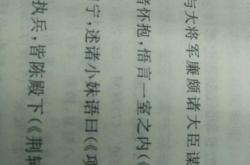 与大将军廉颇诸大臣谋
诸怀抱，悟言一室之内（
宁，述诸小妹语曰《项
执兵，皆陈殿下（《荆轲